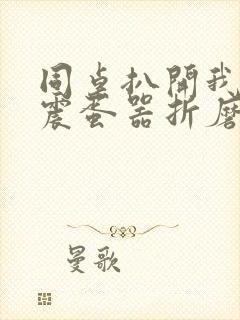 同桌扒開我
震蛋器折磨
曼歌